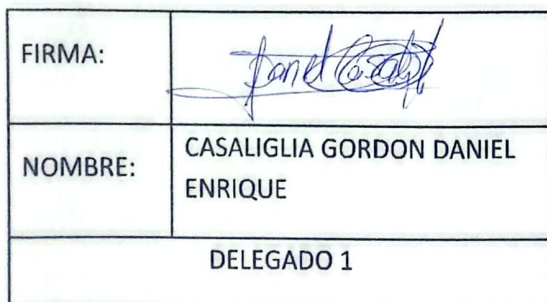 FIRMA:
NOMBRE:
CASALIGLIA GORDON DANIEL
ENRIQUE
DELEGADO 1